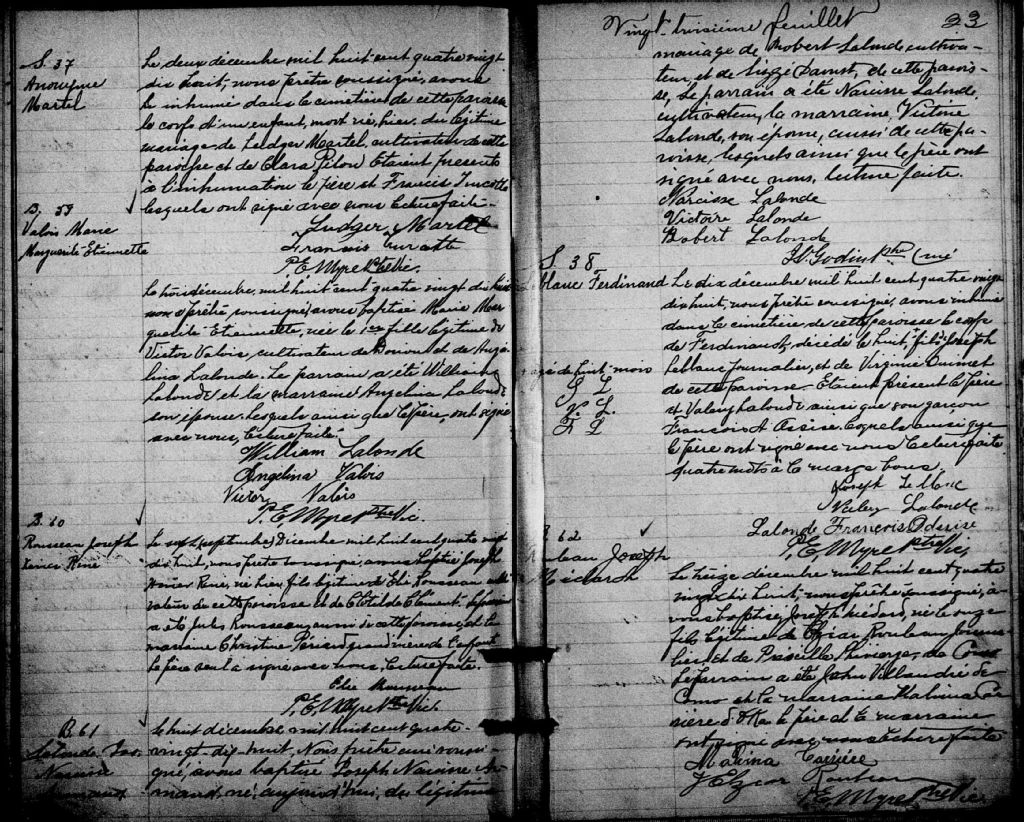 S. 37
Anonyme
Martel
Le deux décembre mil huit cent quatre vingt
dix huit, nous prêtre soussigné, avons
inhumé dans le cimetière de cette paroisse
le corps d'un enfant, mort né, hier, du légitime
mariage de Ludger Martel, cultivateur de cette
paroisse et de Clara Pilon Etaient présents
à l'inhumation le père et Francis Turcotte
lesquels ont signé avec nous lecture faite.
Ludger Martel
Francois Turcotte
P. E. Myre Ptre Vic.
B. 59
Valois Marie
Marguerite Etiennette
Le trois décembre, mil huit cent quatre vingt dix huit
nous prêtre soussigné, avons baptisé Marie Mar
guerite Etiennette, née le 1er fille légitime de
Victor Valois, cultivateur de et de Angé
lina Lalonde. Le parrain a été William
Lalonde et la marraine Angelina Lalonde
son épouse. Lesquels ainsi que le père, ont signé
avec nous, lecture faite.
William Lalonde
Angelina Valois
Victor Valois
P. E. Myre Ptre Vic.
B. 60
Rousseau Joseph
Xavier René
Le sept (septembre) Décembre mil huit cent quatre vingt
dix huit, nous prêtre soussigné, avons baptisé Joseph
Xavier René, né hier, fils légitime de Elie Rousseau
de cette paroisse et de Clotilde Clément. Le parrain
a été Jules Rousseau, aussi de cette paroisse, et la
marraine Christine grand'mère de l'enfant
le père seul a signé avec nous, lecture faite.
Elie Rousseau
P. E. Myre Ptre Vic
B 61
Lalonde Jos.
Narcisse
Armand
Le huit décembre mil huit cent quatre-
vingt-dix-huit Nous prêtre curé soussi-
gné, avons baptisé Joseph Narcisse Ar-
mand, né, aujourd'hui, du légitime
Vingt-troisième feuillet 23
mariage de Robert Lalonde, cultiva-
teur, et de Daoust, de cette parois-
se, Le parrain a été Narcisse Lalonde,
cultivateur, la marraine, Victoire
Lalonde, son épouse, aussi de cette pa-
roisse, lesquels ainsi que le père ont
signé avec nous, lecture faite.
Narcisse Lalonde
Victoire Lalonde
Robert Lalonde
Godin Ptre Curé
S. 38
Leblanc Ferdinand
Le dix décembre mil huit cent quatre vingt
dix huit, nous prêtre soussigné, avons inhumé
dans le cimetière de cette paroisse le corps
de Ferdinand, décédé le huit, fils de Joseph
Leblanc journalier, et de Virginie Ouimet
de cette paroisse. Etaient présent le père
et Valery Lalonde ainsi que son garçon
François Assise. Lesquels aussi que
le père ont signé avec nous lecture faite
quatre mots à la marge bons.
agé de huit mois
J. L.
V. L.
F L
Joseph Leblanc
Valery Lalonde
Lalonde Francois Dassise
P. E. Myre Ptre Vic
B 62
Rouleau Joseph
Médard
Le treize décembre mil huit cent quatre
vingt dix huit, nous prêtre soussigné, a-
vons baptisé Joseph Médard, né le onze
fils légitime de Rouleau journa-
lier et de de Como
Le parrain a été John de
Como et la marraine Malvina Car-
rière d'Oka le père et la marraine
ont signé avec nous lecture faite
Malvina Carrière
Rouleau
P. E. Myre Ptre Vic